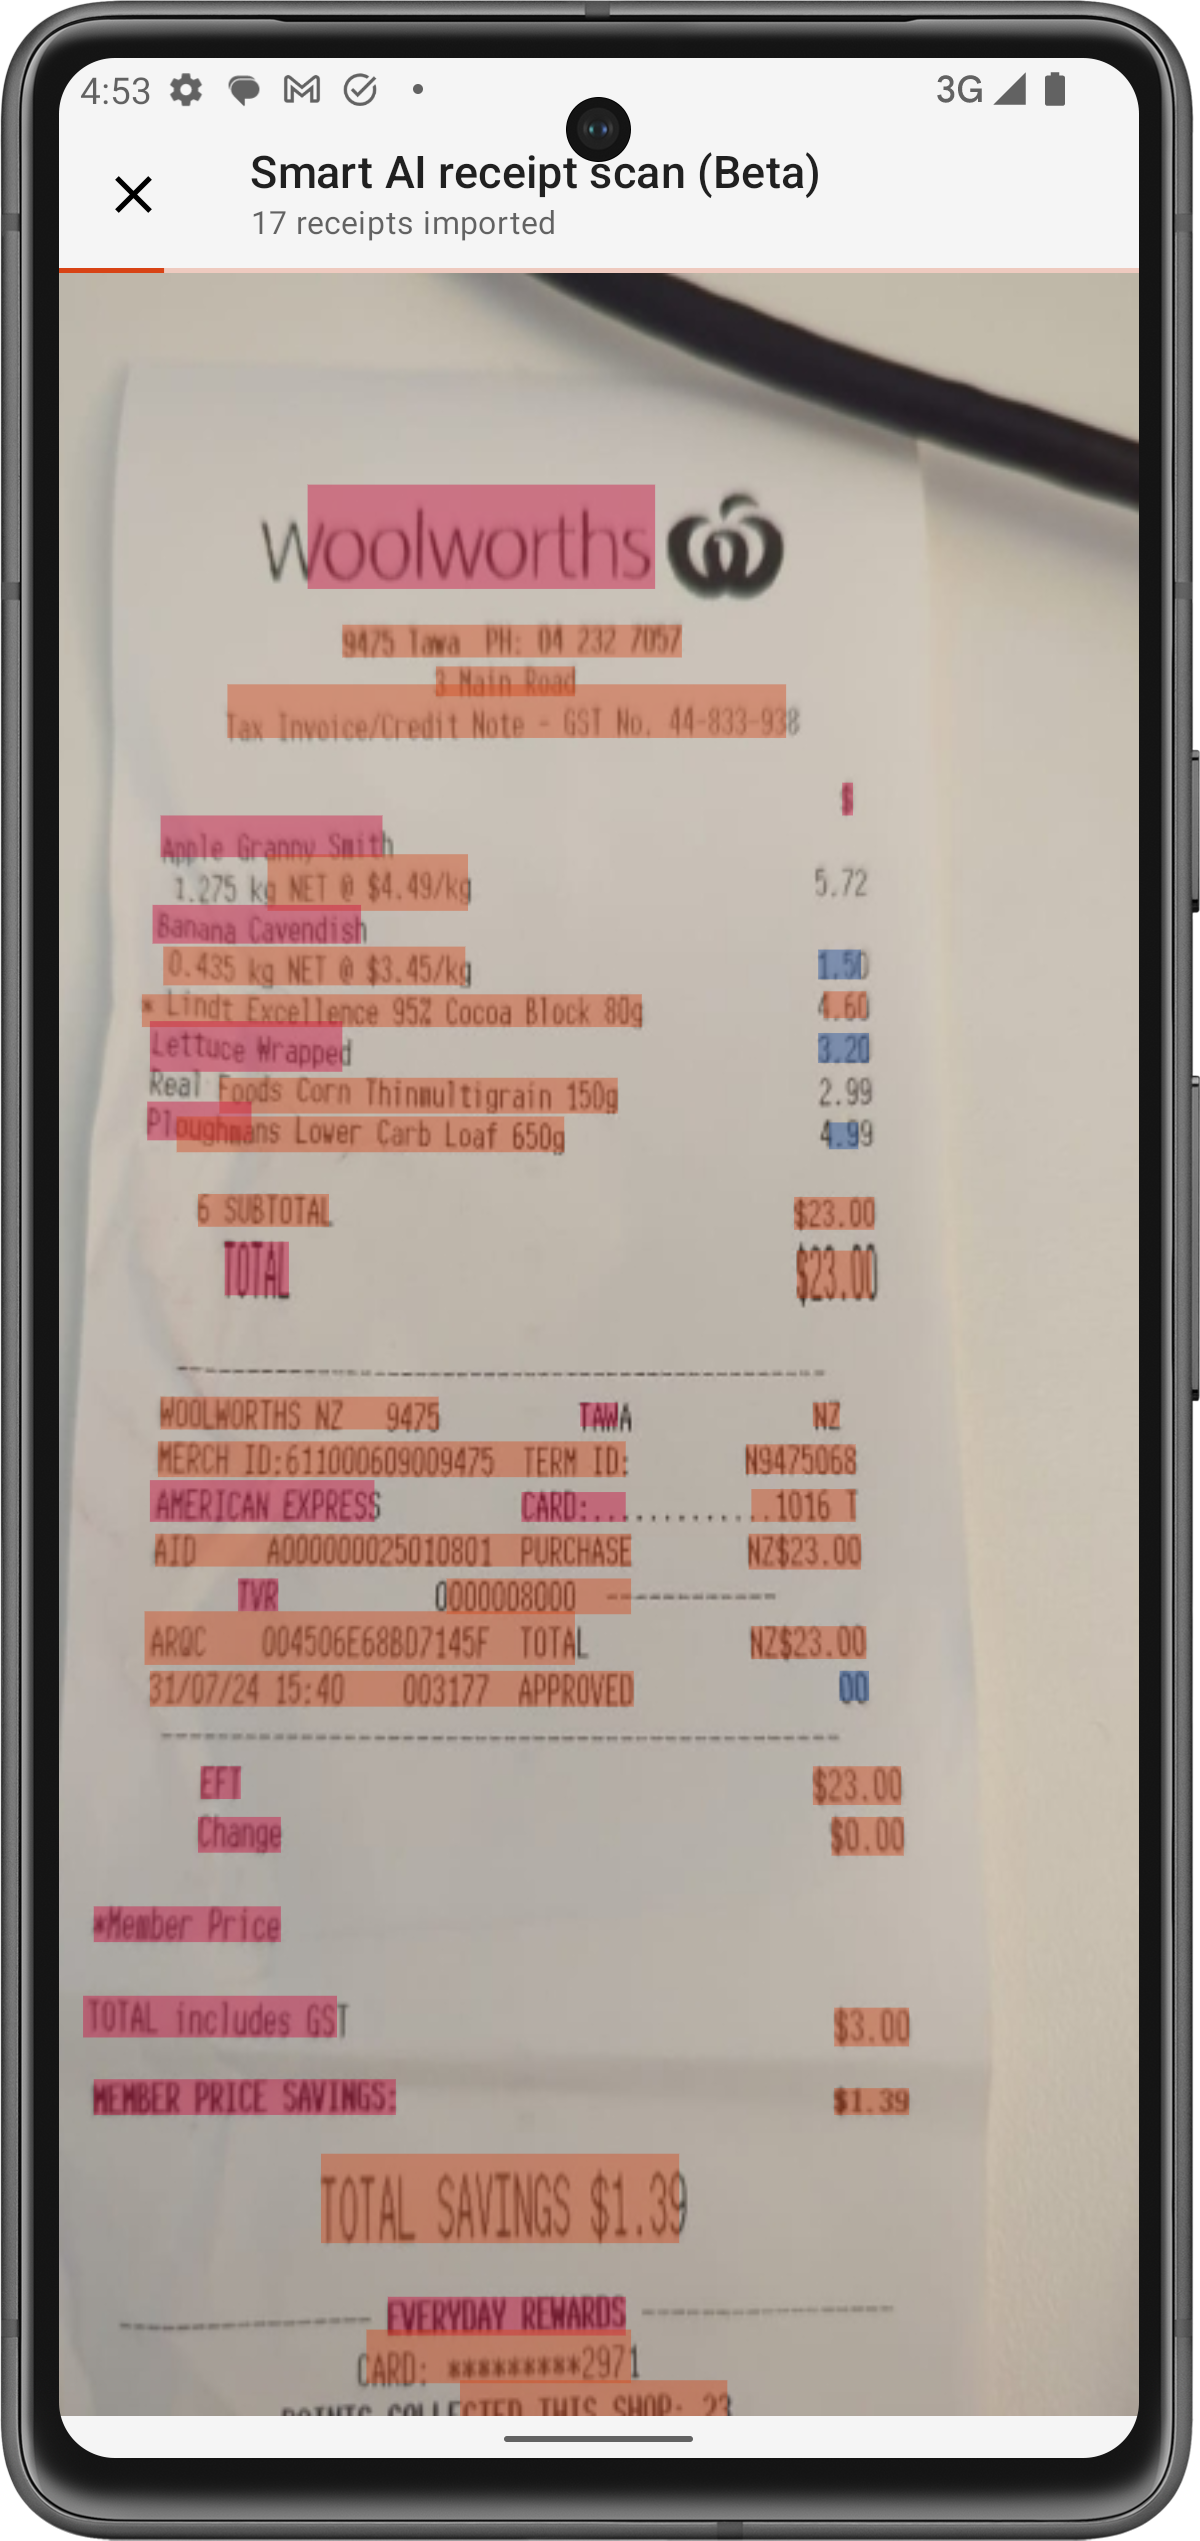 4:53
3G
Smart AI receipt scan (Beta)
17 receipts imported
Woolworths
9475 Tawa PH: 04 232 7057
3 Main Road
Tax Invoice/Credit Note - GST No. 44-833-938
$
Apple Granny Smith
1.275 kg NET @ $4.49/kg 5.72
Banana Cavendish
0.435 kg NET @ $3.45/kg 1.50
* Lindt Excellence 95% Cocoa Block 80g 4.60
Lettuce Wrapped 3.20
Real Foods Corn Thinmultigrain 150g 2.99
Ploughmans Lower Carb Loaf 650g 4.99
6 SUBTOTAL $23.00
TOTAL $23.00
WOOLWORTHS NZ 9475 TAWA NZ
MERCH ID:611000609009475 TERM ID: N9475068
AMERICAN EXPRESS CARD:..............1016 T
AID A000000025010801 PURCHASE NZ$23.00
TVR 0000008000 ------------
ARQC 004506E68BD7145F TOTAL NZ$23.00
31/07/24 15:40 003177 APPROVED 00
EFT $23.00
Change $0.00
*Member Price
TOTAL includes GST $3.00
MEMBER PRICE SAVINGS: $1.39
TOTAL SAVINGS $1.39
EVERYDAY REWARDS
CARD: *********2971
POINTS COLLECTED THIS SHOP: 23